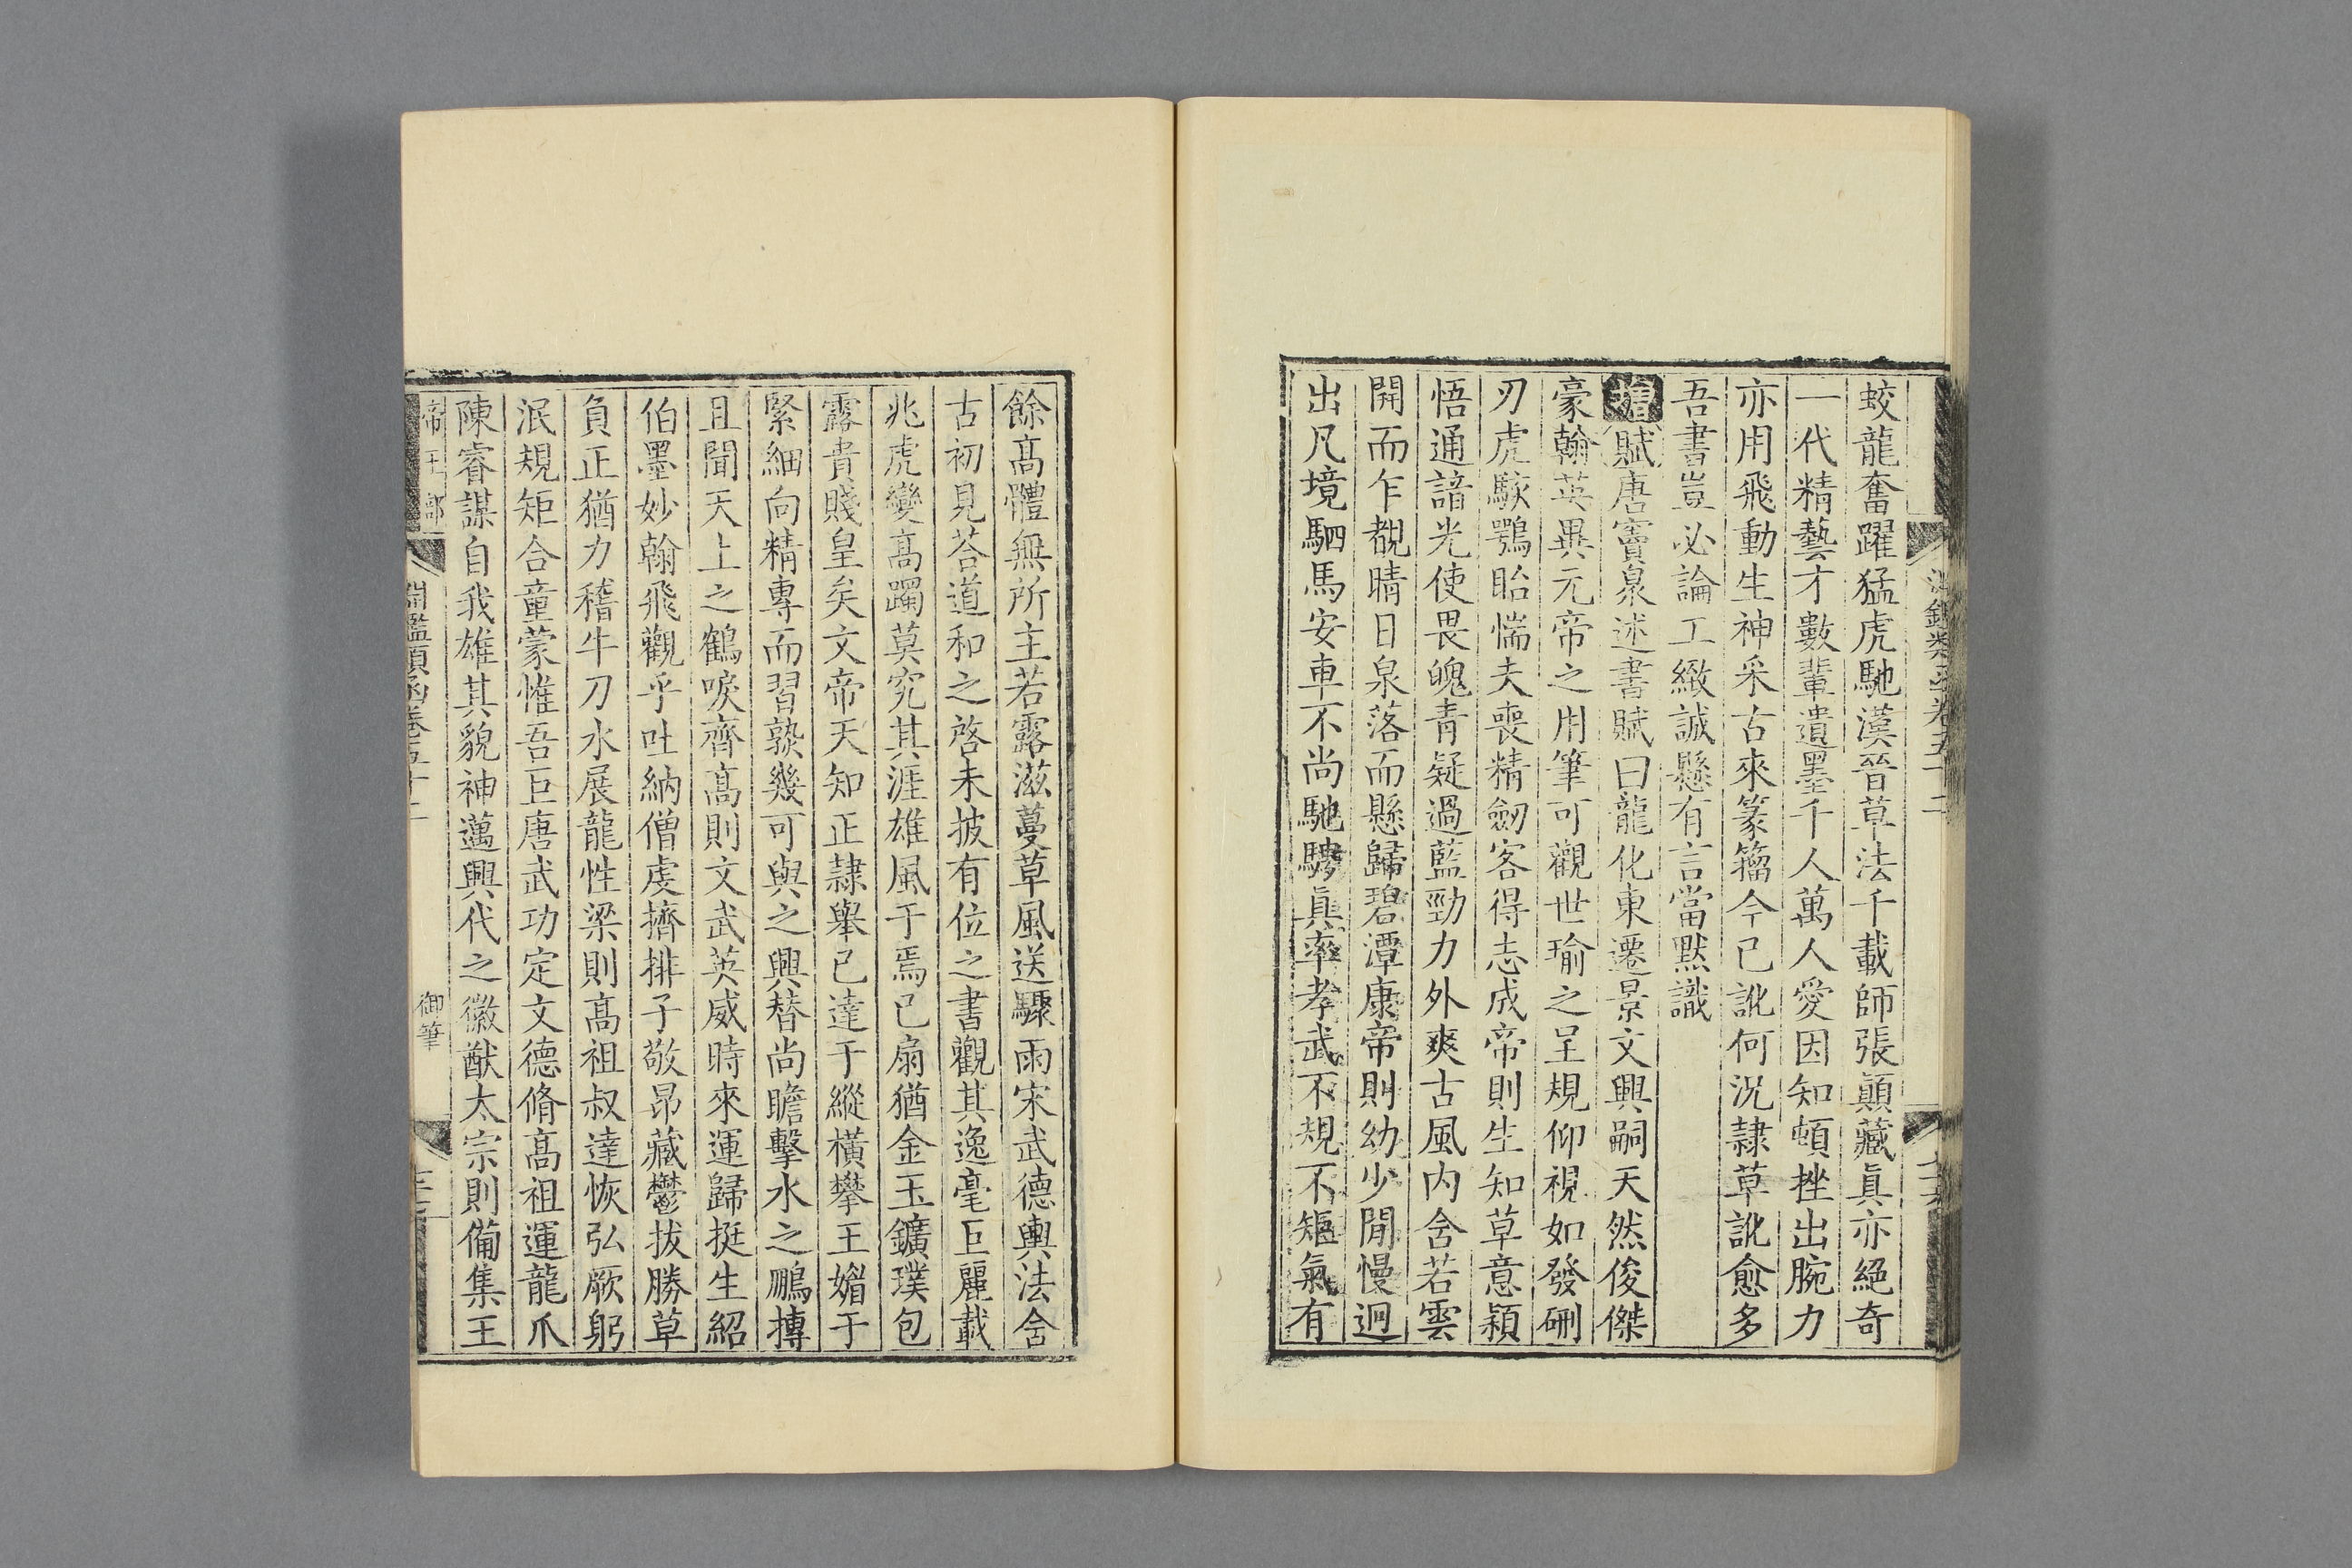 蛟龍奮躍猛虎馳漢晉草法千載師張顚藏眞亦絕奇
一代精藝才數輩遺墨千人萬人愛因知頓挫出腕力
亦用飛動生神采古來篆籀今已訛何況隸草訛愈多
吾書豈必論工緻誠懸有言當默識
增賦唐竇泉述書賦曰龍化東遷景文興嗣天然俊傑
豪翰英異元帝之用筆可觀世瑜之呈規仰視如發硎
刃虎駭鶚眙惴夫喪精劒客得志成帝則生知草意穎
悟通諳光使畏魄青疑過藍勁力外爽古風内含若雲
開而乍覩晴日泉落而懸歸碧潭康帝則幼少閒慢迥
出凡境駟馬安車不尚馳騁眞率孝武不規不矩氣有
餘髙體無所主若露滋蔓草風送驟雨宋武德輿法含
古初見荅道和之啓未披有位之書觀其逸毫巨麗載
兆虎變髙躅莫究其涯雄風于焉已扇猶金玉鑛璞包
露貴賤皇矣文帝天知正隷舉已達于縱橫攀王媚于
緊細向精專而習熟幾可與之興替尚瞻擊水之鵬摶
且聞天上之鶴唳齊髙則文武英威時來運歸挺生紹
伯墨妙翰飛觀乎吐納僧虔擠排子敬昂藏鬱拔勝草
負正猶力稽牛刀水展龍性梁則髙祖叔達恢弘厥躬
泯規矩合童蒙惟吾巨唐武功定文德脩髙祖運龍爪
陳睿謀自我雄其貌神邁興代之徽猷太宗則備集王
帝王部 淵鑑類函卷五十二 御筆